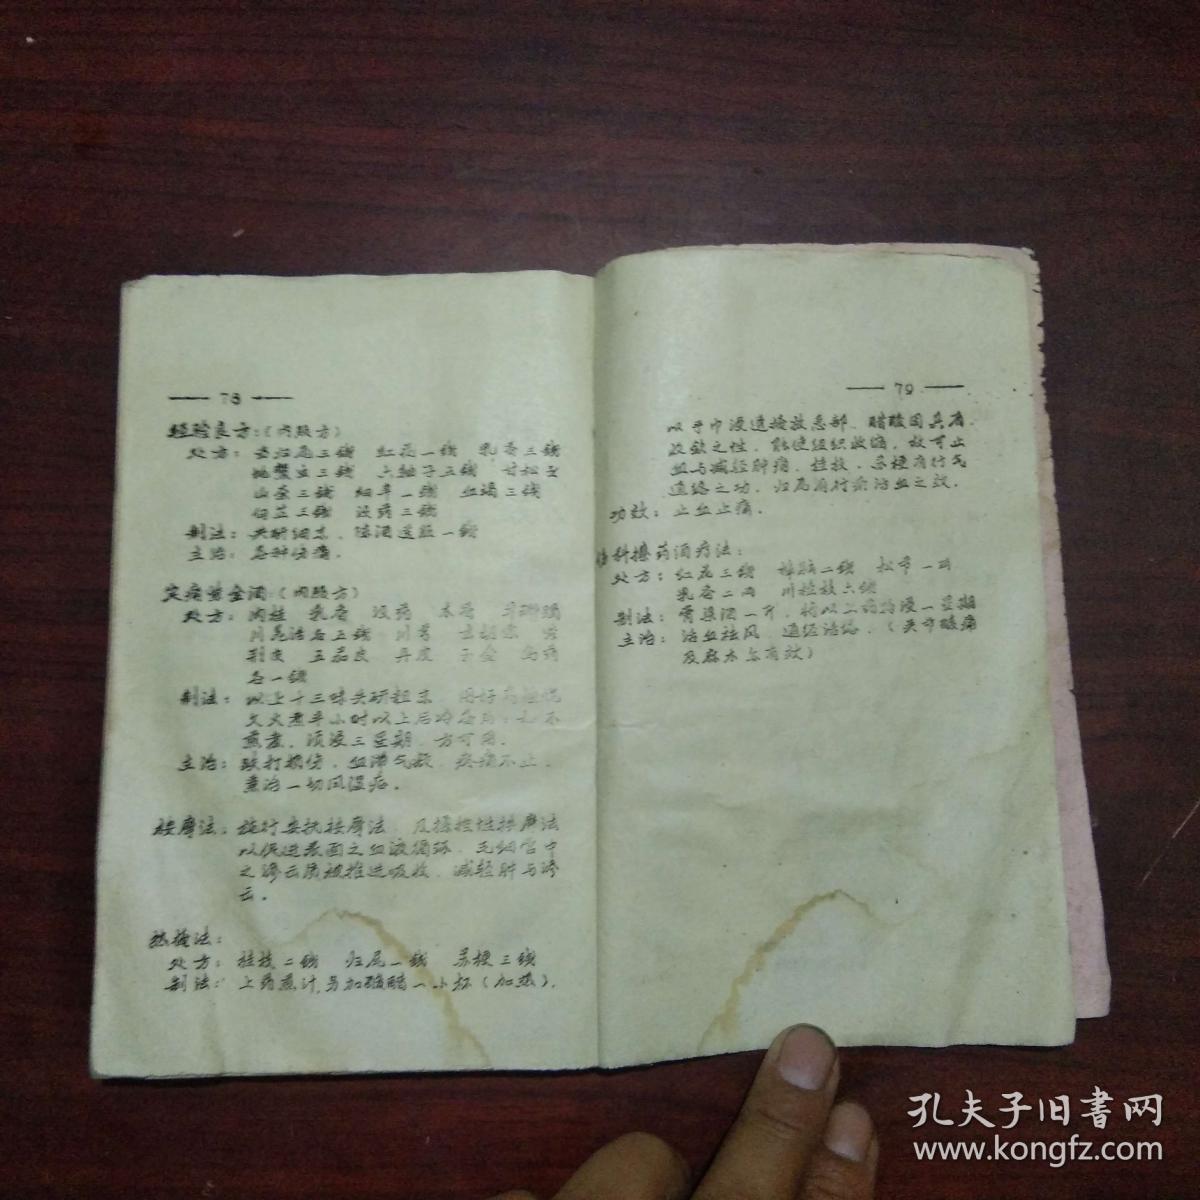 — 78 —
经验良方:(内服方)
处方: 全归尾三钱 红花一钱 乳香三钱
地鳖虫三钱 六轴子三钱 甘松
山奈三钱 细辛一钱 血竭三钱
白芷三钱 没药三钱
制法: 共研细末, 陈酒送服一钱
主治: 各种伤痛.
黄金酒:(内服方)
处方: 肉桂 乳香 没药 木香 羊踯躅
川羌活各五钱 川芎 玄胡索 紫
荆皮 五茄皮 丹皮 子金 乌药
各一钱
制法: 以上十三味共研粗末, 用好高粱
文火煮半小时以上后冷却,不
煮者, 须浸三星期, 方可用.
主治: 跌打损伤, 血滞气, 疼痛不止,
兼治一切风湿症.
按摩法: 施行安抚按摩法, 及按摩法
以促进表面之血液循环, 毛细管中
之渗出质被推进吸收, 减轻肿与渗
出.
热按法:
处方: 桂枝二钱 归尾一钱 苏梗三钱
制法: 上药煎汁,另加酸醋一小杯(加热),
— 79 —
以手巾浸透按放患部, 醋酸因具有
收敛之性, 能使组织收缩, 故可止
血与减轻肿痛, 桂枝, 苏梗有行气
通络之功, 归尾有行瘀活血之效.
功效: 止血止痛.
伤科擦药酒疗法:
处方: 红花三钱 樟脑二钱 松节一两
乳香二两 川桂枝六钱
制法: 高粱酒一斤, 将以上药物浸一星期
主治: 活血祛风, 通经活络, (关节酸痛
及麻木等有效)
孔夫子旧書网
www.kongfz.com